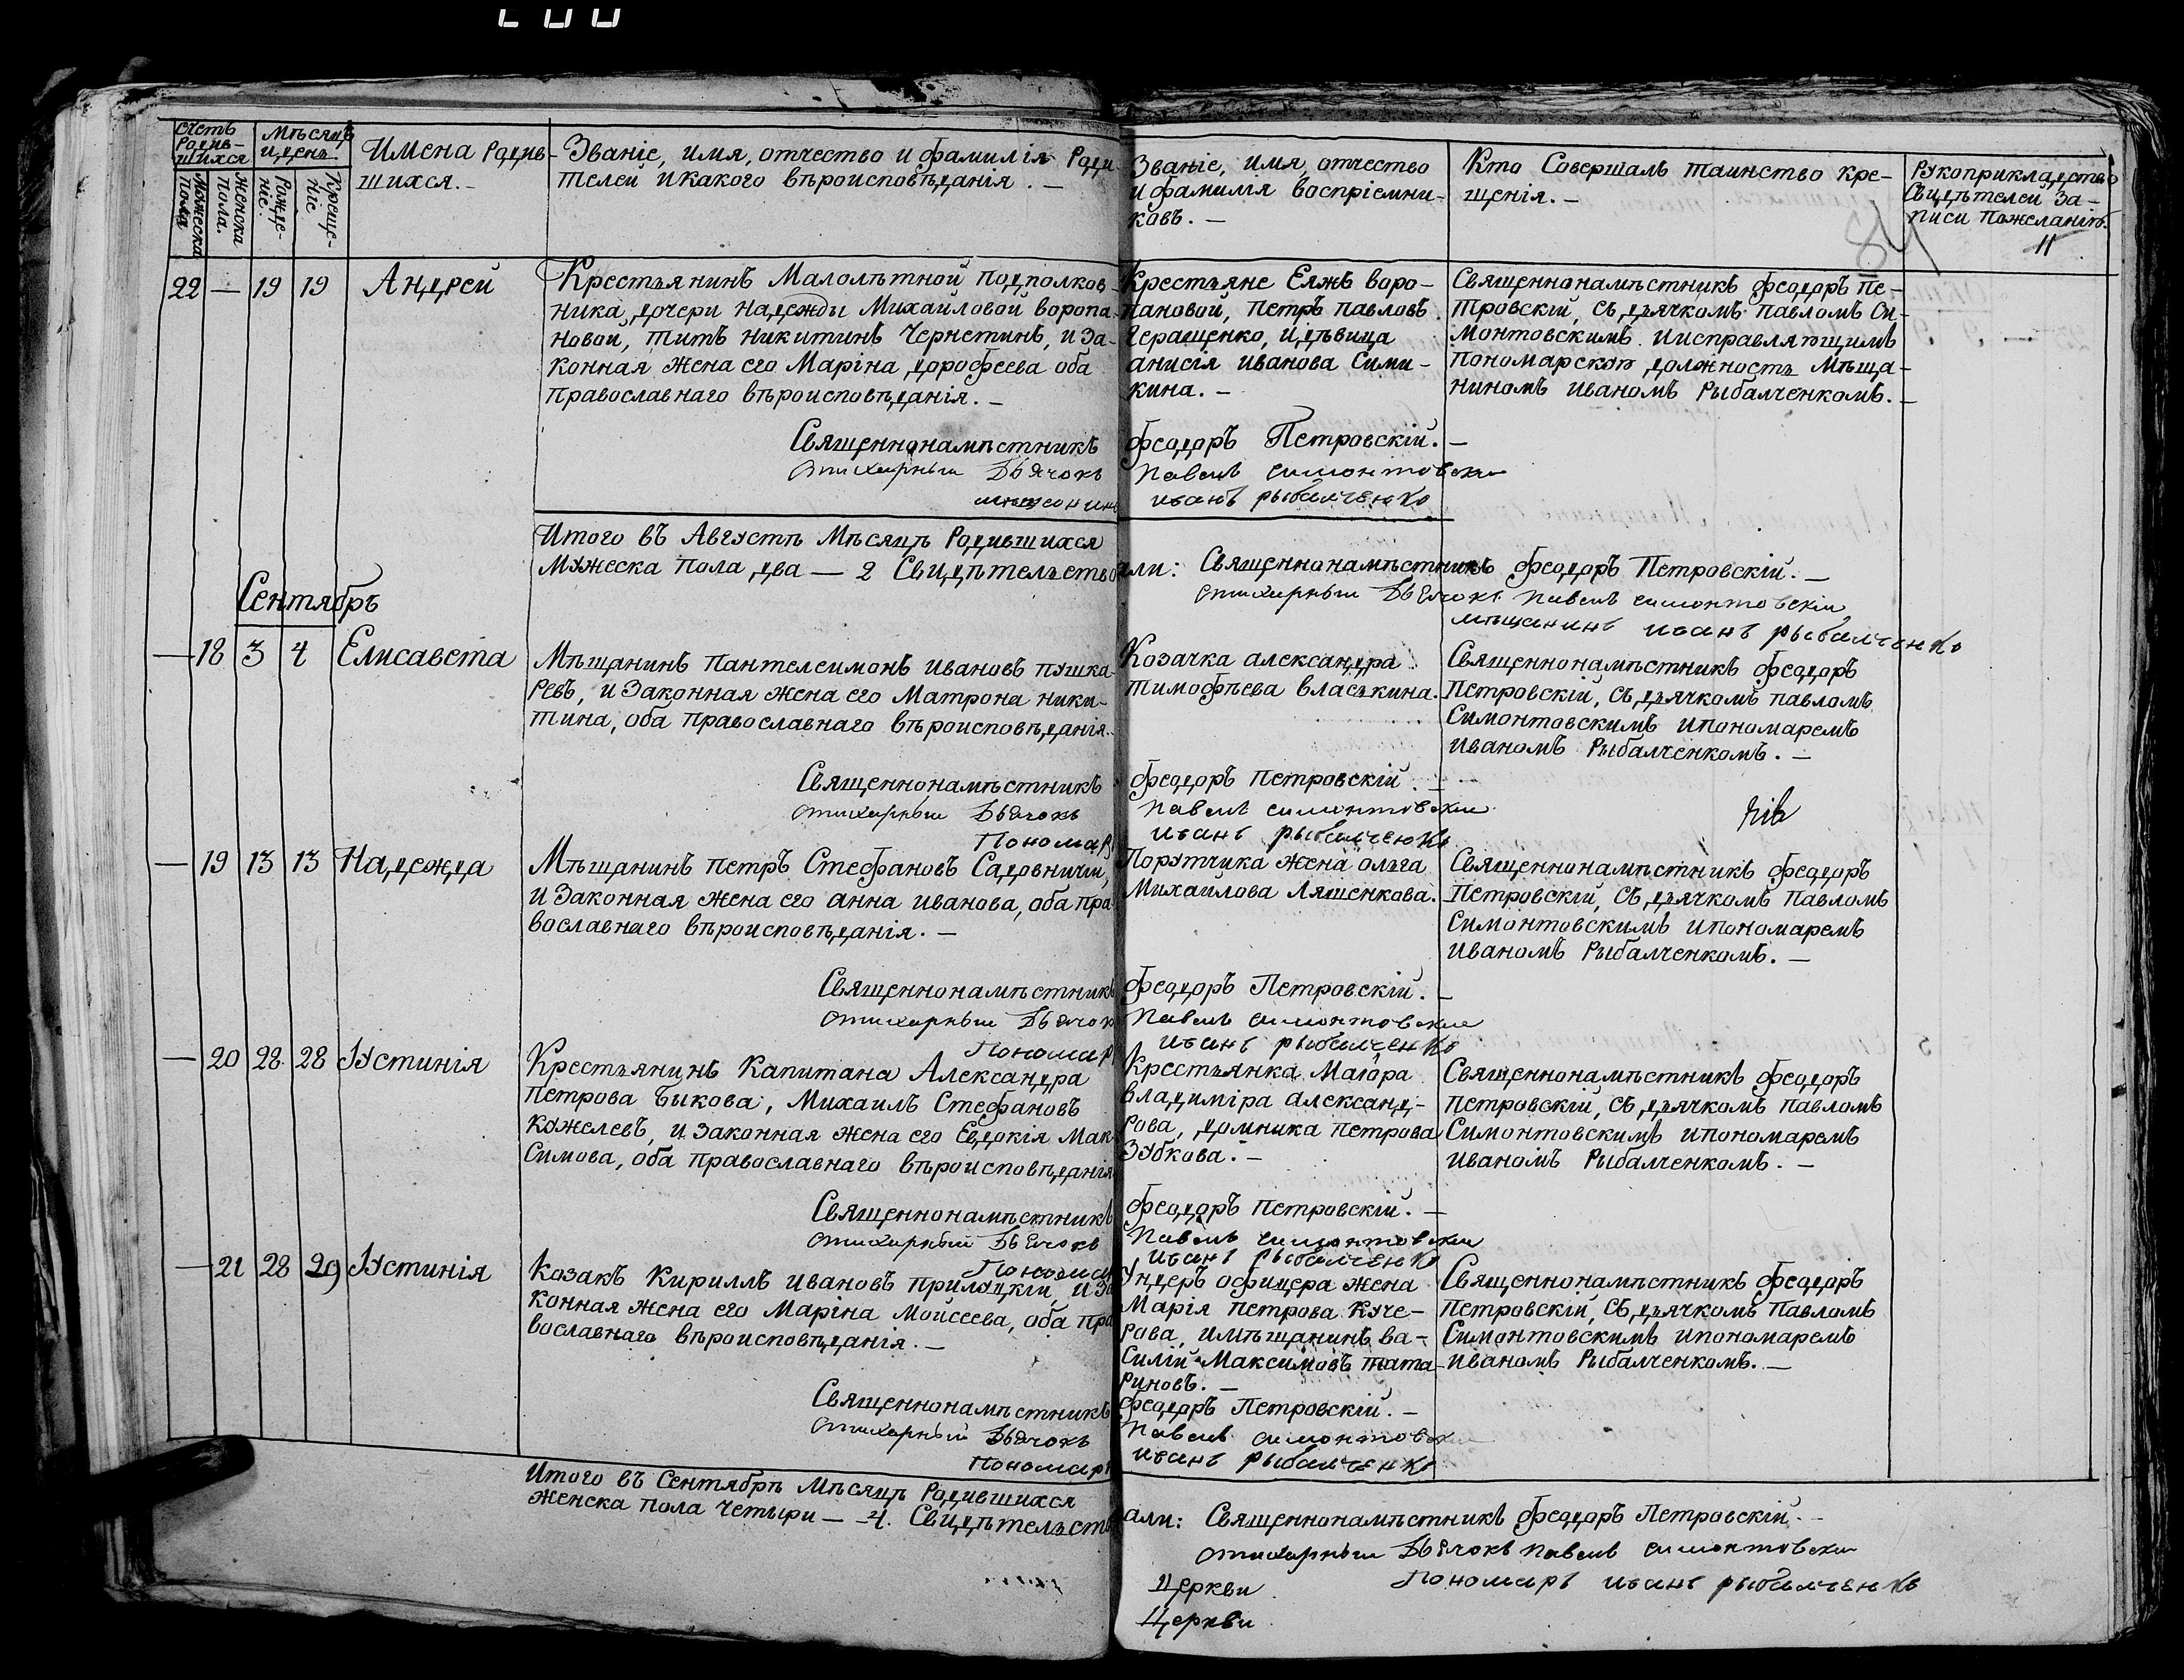 Счетъ Родив-шихся
Мѣсяцъ и день.
Имена Родив-
шихся. —
Званіе, имя, отчество и фамилія Роди-
телей и какого вѣроисповѣданія. —
Званіе, имя, отчество
и фамилия воспріемни-
ковъ. —
Кто Совершалъ таинство кре-
щенія. —
Рукоприкладство
Свидѣтелей За-
писи пожеланію.
Мужеска пола
Женска пола.
Рожде-ніе.
Креще-ніе
84
11
22 — 19 19 Андрей
Крестьянинъ Малолѣтной подполков-
ника дочери Надежды Михайловой воропа-
новой, титъ никитинъ Чернетинъ, и За-
конная жена его Маріна дорофеева оба
православнаго вѣроисповѣданія. —
Крестьяне Еяжъ воро-
пановой, петръ павловъ
Геращенко, и дѣвица
анисія иванова Сими-
кина. —
Священнонамѣстникъ феодоръ Пе-
тровскій, съ дьячкомъ павломъ Си-
монтовскимъ и исправляющимъ
пономарскою должность Мѣща-
ниномъ иваномъ Рыбалченкомъ. —
Священнонамѣстникъ феодоръ Петровскій. —
стихарный Дьячокъ павелъ симонтовски
мѣщанинъ иванъ рыбалченко
Итого въ Августѣ Мѣсяцѣ Родившихся
Мужеска пола два — 2 Свидѣтельствовали: Священнонамѣстникъ феодоръ Петровскій. —
стихарный Дьячокъ павелъ симонтовскій
мѣщанинъ иванъ рыбалченко
Сентябръ
— 18 3 4 Елисавета
Мѣщанинъ пантелеимонъ ивановъ пушка-
ревъ, и Законная жена его Матрона ники-
тина, оба православнаго вѣроисповѣданія.
Козачка александра
тимофѣева власкина.
Священнонамѣстникъ феодоръ
Петровскій, съ дьячкомъ павломъ
Симонтовскимъ и пономаремъ
иваномъ Рыбалченкомъ. —
Священнонамѣстникъ феодоръ петровскій. —
стихарный Дьячокъ павелъ симонтовски
Пономарь иванъ рыбалченко
— 19 13 13 Надежда
Мѣщанинъ петръ Стефановъ Садовничи,
и Законная жена его анна иванова, оба пра-
вославнаго вѣроисповѣданія. —
Порутчика жена ольга
Михаилова Ляшенкова.
Священнонамѣстникъ феодоръ
Петровскій, съ дьячкомъ павломъ
Симонтовскимъ и пономаремъ
иваномъ Рыбалченкомъ. —
Священнонамѣстникъ феодоръ Петровскій. —
стихарный Дьячокъ павелъ симонтовски
Пономарь иванъ рыбалченко
— 20 28 28 Іустинія
Крестьянинъ Капитана Александра
петрова Быкова, Михаилъ Стефановъ
Кужелевъ, и Законная жена его Евдокія Мак-
Симова, оба православнаго вѣроисповѣданія
Крестьянка Маіора
владиміра александ-
рова, домника петрова
Зубкова. —
Священнонамѣстникъ феодоръ
петровскій, съ дьячкомъ павломъ
Симонтовскимъ и пономаремъ
иваномъ Рыбалченкомъ. —
Священнонамѣстникъ феодоръ петровскій. —
стихарный Дьячокъ павелъ симонтовски
Пономарь иванъ рыбалченко
— 21 28 29 Іустинія
Козакъ Кириллъ ивановъ прилуцкіи, и За-
конная жена его Маріна Моисеева, оба пра-
вославнаго вѣроисповѣданія. —
Ундеръ офицера жена
Марія петрова Куче-
рова, и мѣщанинъ ва-
Силій Максимовъ тата-
риновъ. —
Священнонамѣстникъ феодоръ
петровскій, съ дьячкомъ павломъ
Симонтовскимъ и пономаремъ
иваномъ Рыбалченкомъ. —
Священнонамѣстникъ феодоръ Петровскій. —
стихарный Дьячокъ павелъ симонтовски
Пономарь иванъ рыбалченко
Итого въ Сентябрѣ Мѣсяцѣ Родившихся
женска пола Четыри — 4. Свидѣтельствовали: Священнонамѣстникъ феодоръ Петровскій. —
стихарный Дьячокъ павелъ симонтовски
Пономаръ иванъ рыбалченко
Церкви
Церкви